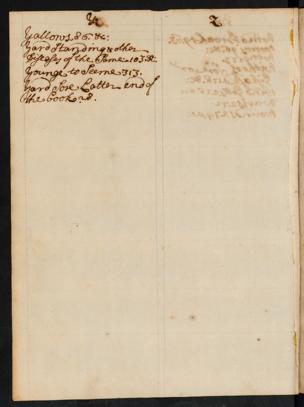 Y
Z
Yallows 86. &c.
Yard Standing & other
Diseases of the Same 103. &c
Younge to Seeme 313.
Yard Sore Latter end of
the book 28.